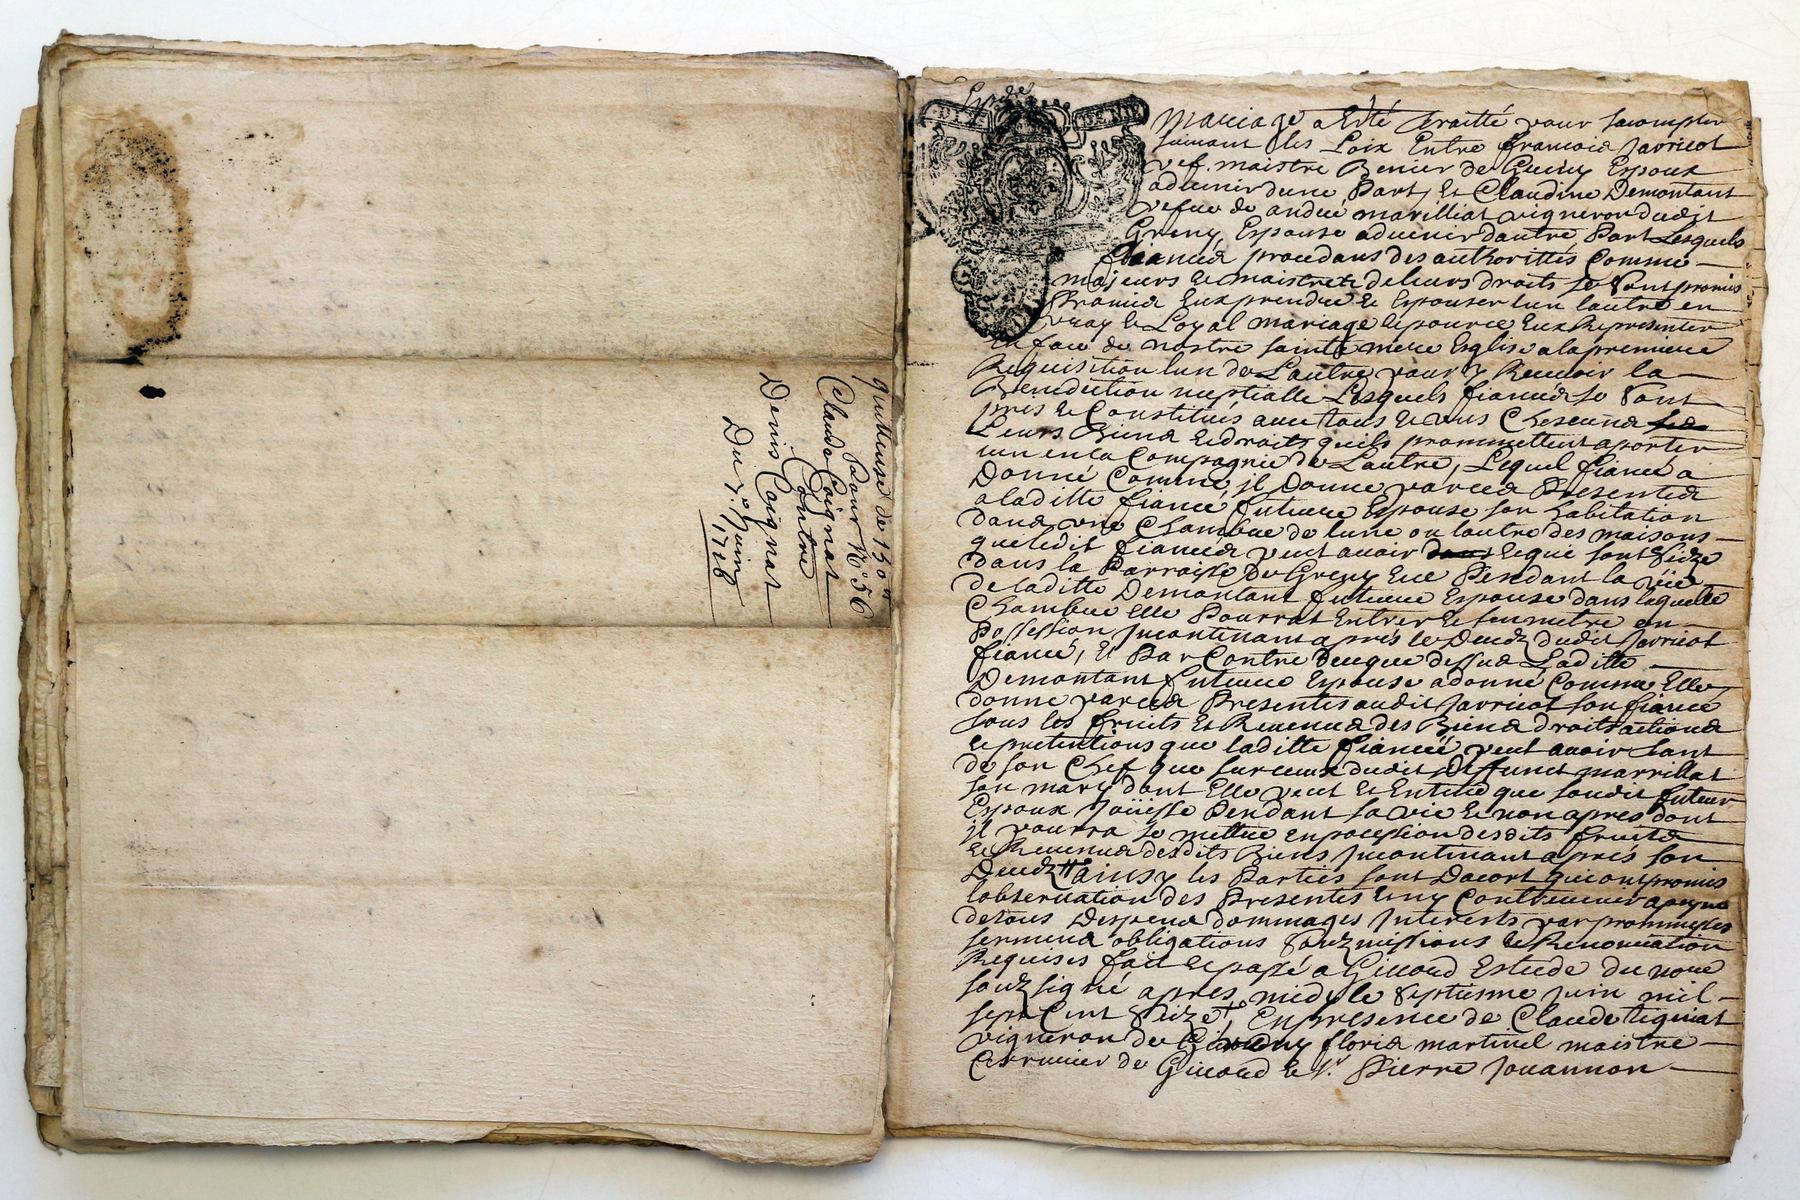 quittance de 150ll
Pour No 56
Claude Coignat
Contre
Denis Coignat
Du 7e Juin
1716
Expdee
Mariage a Esté traitté pour sacomplir
suivant les Loix Entre francois Javricot
vef. maistre Benier de Espoux
advenir dune Part, Et Claudine Demontant
vefve de andré marilliat vigneron dudit
Greny Espouse advenir dautre Part Lesquels
fiancéa procedans des authorittés Comme
majeurs et maistrets de leurs droits se sont promis
Eux prendre et Espouser lun lautre en
vray et Loyal mariage et Eux Representer
En face de nostre sainte mere Esglise a la premiere
Requisition lun de Lautre pour y Recevoir la
Benediction nuptialle Lesquels fiancéa se sont
pris et Constitués avec tous et uns Chescuna
Leurs Biena et droits quils prommettent aporter
lun en la Compagnie de Lautre, Lequel fiancé a
Donné Comme jl Donne par cea Presentea
a laditte fiancée future Espouse son habitation
dana une Chambre de lune ou lautre des maisons
que ledit fiancéa peut avoir et que sont size
dans la Parroisse de Greny Ece Pendant la vie
de laditte Demontant future Espouse dans laquelle
Chambre Elle Pourrat Entrer et se mettre en
Possession jncontinant apres le Decedz dudit Javricot
fiancé, Et Par Contre de ce que dessus Laditte
Demontant future Espouse a donné Comme Elle
donne par cea Presentes audit Javricot son fiancé
tous les fruits Et Revenua des Biena droits actiona
et pretentions que laditte fiancée peut avoir tant
de son Chef que sur ceux dudit Deffunct marrillat
son mary dont Elle veut Et Entend que sondit futeur
Espoux Joüisse Pendant sa vie et non apres dont
jl pourra se mettre en pocession desdits fruits
et Revenua desdits Biens jncontinant aprés son
Decedz ainsy les Parties sont Dacort qui ont promis
lobservation des Presentes Et ny Contrevenir a peyne
de tous Despena dommages Jnterests par prommesses
sermena obligations souzmissions et Renonciation
Requises fait et passé a Givord Estude du nore
souz signé apres midy le Septieme Juin mil
sept Cent Seize En presence de Claude
vigneron de floria martinel maistre
de Givord et sr. Pierre Jouannon